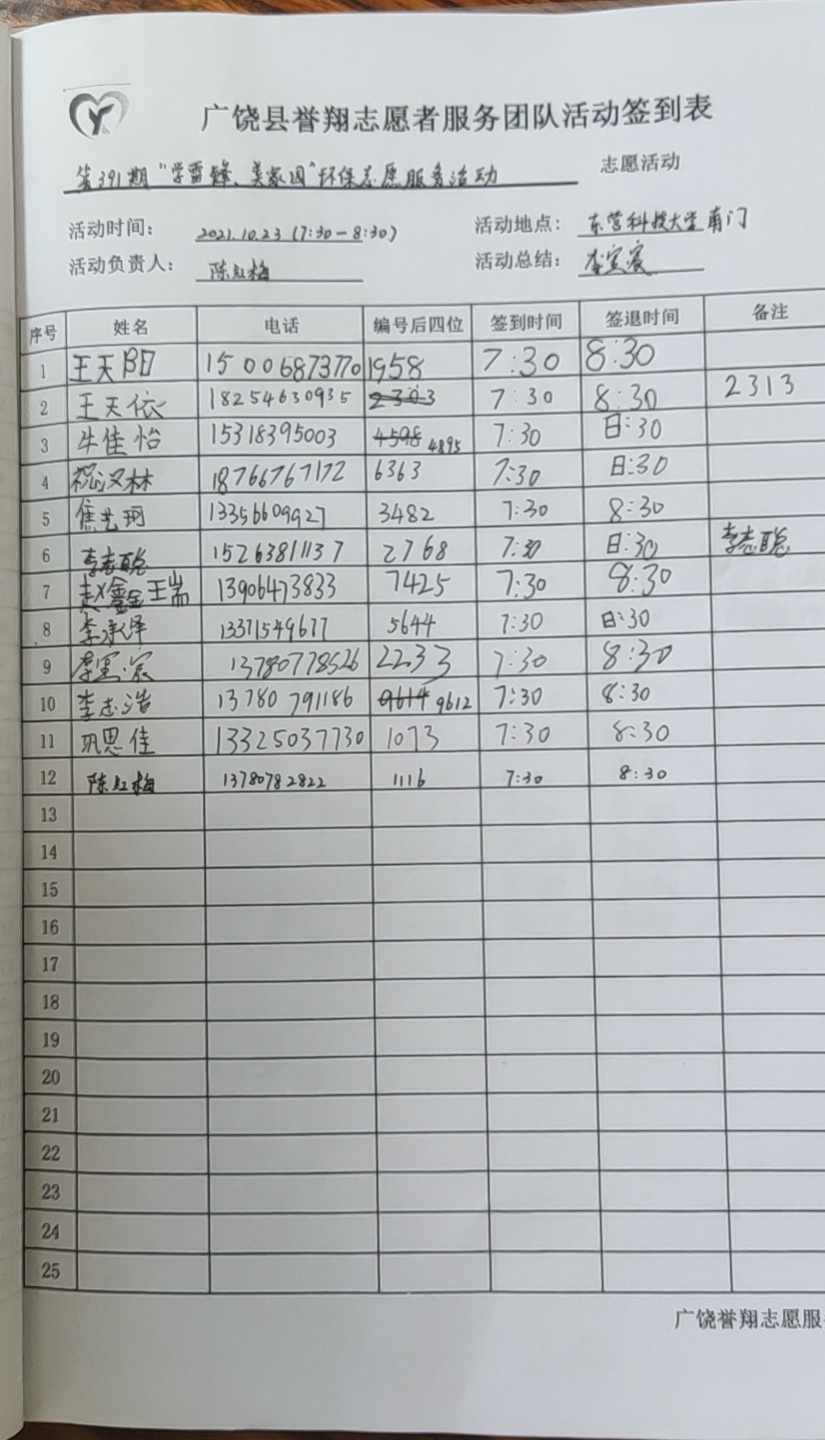 广饶县誉翔志愿者服务团队活动签到表
第391期“学雷锋、美家园”环保志愿服务活动 志愿活动
活动时间： 2021.10.23 (7:30-8:30) 活动地点： 东营科技大学南门
活动负责人： 陈红梅 活动总结： 李宜宸
序号 姓名 电话 编号后四位 签到时间 签退时间 备注
1 王天阳 15006873770 1958 7:30 8:30
2 王天依 18254630935 2303 7:30 8:30 2313
3 牛佳怡 15318395003 4598 4895 7:30 8:30
4 祝汉林 18766767172 6363 7:30 8:30
5 焦艺珂 13356609927 3482 7:30 8:30
6 李志聪 15263811137 2768 7:30 8:30 李志聪
7 赵鑫 王耑 13906473833 7425 7:30 8:30
8 李承泽 13371549677 5644 7:30 8:30
9 李宜宸 13780778526 2233 7:30 8:30
10 李志浩 13780791186 9614 9612 7:30 8:30
11 巩思佳 13325037730 1073 7:30 8:30
12 陈红梅 13780782822 1116 7:30 8:30
13
14
15
16
17
18
19
20
21
22
23
24
25
广饶誉翔志愿服